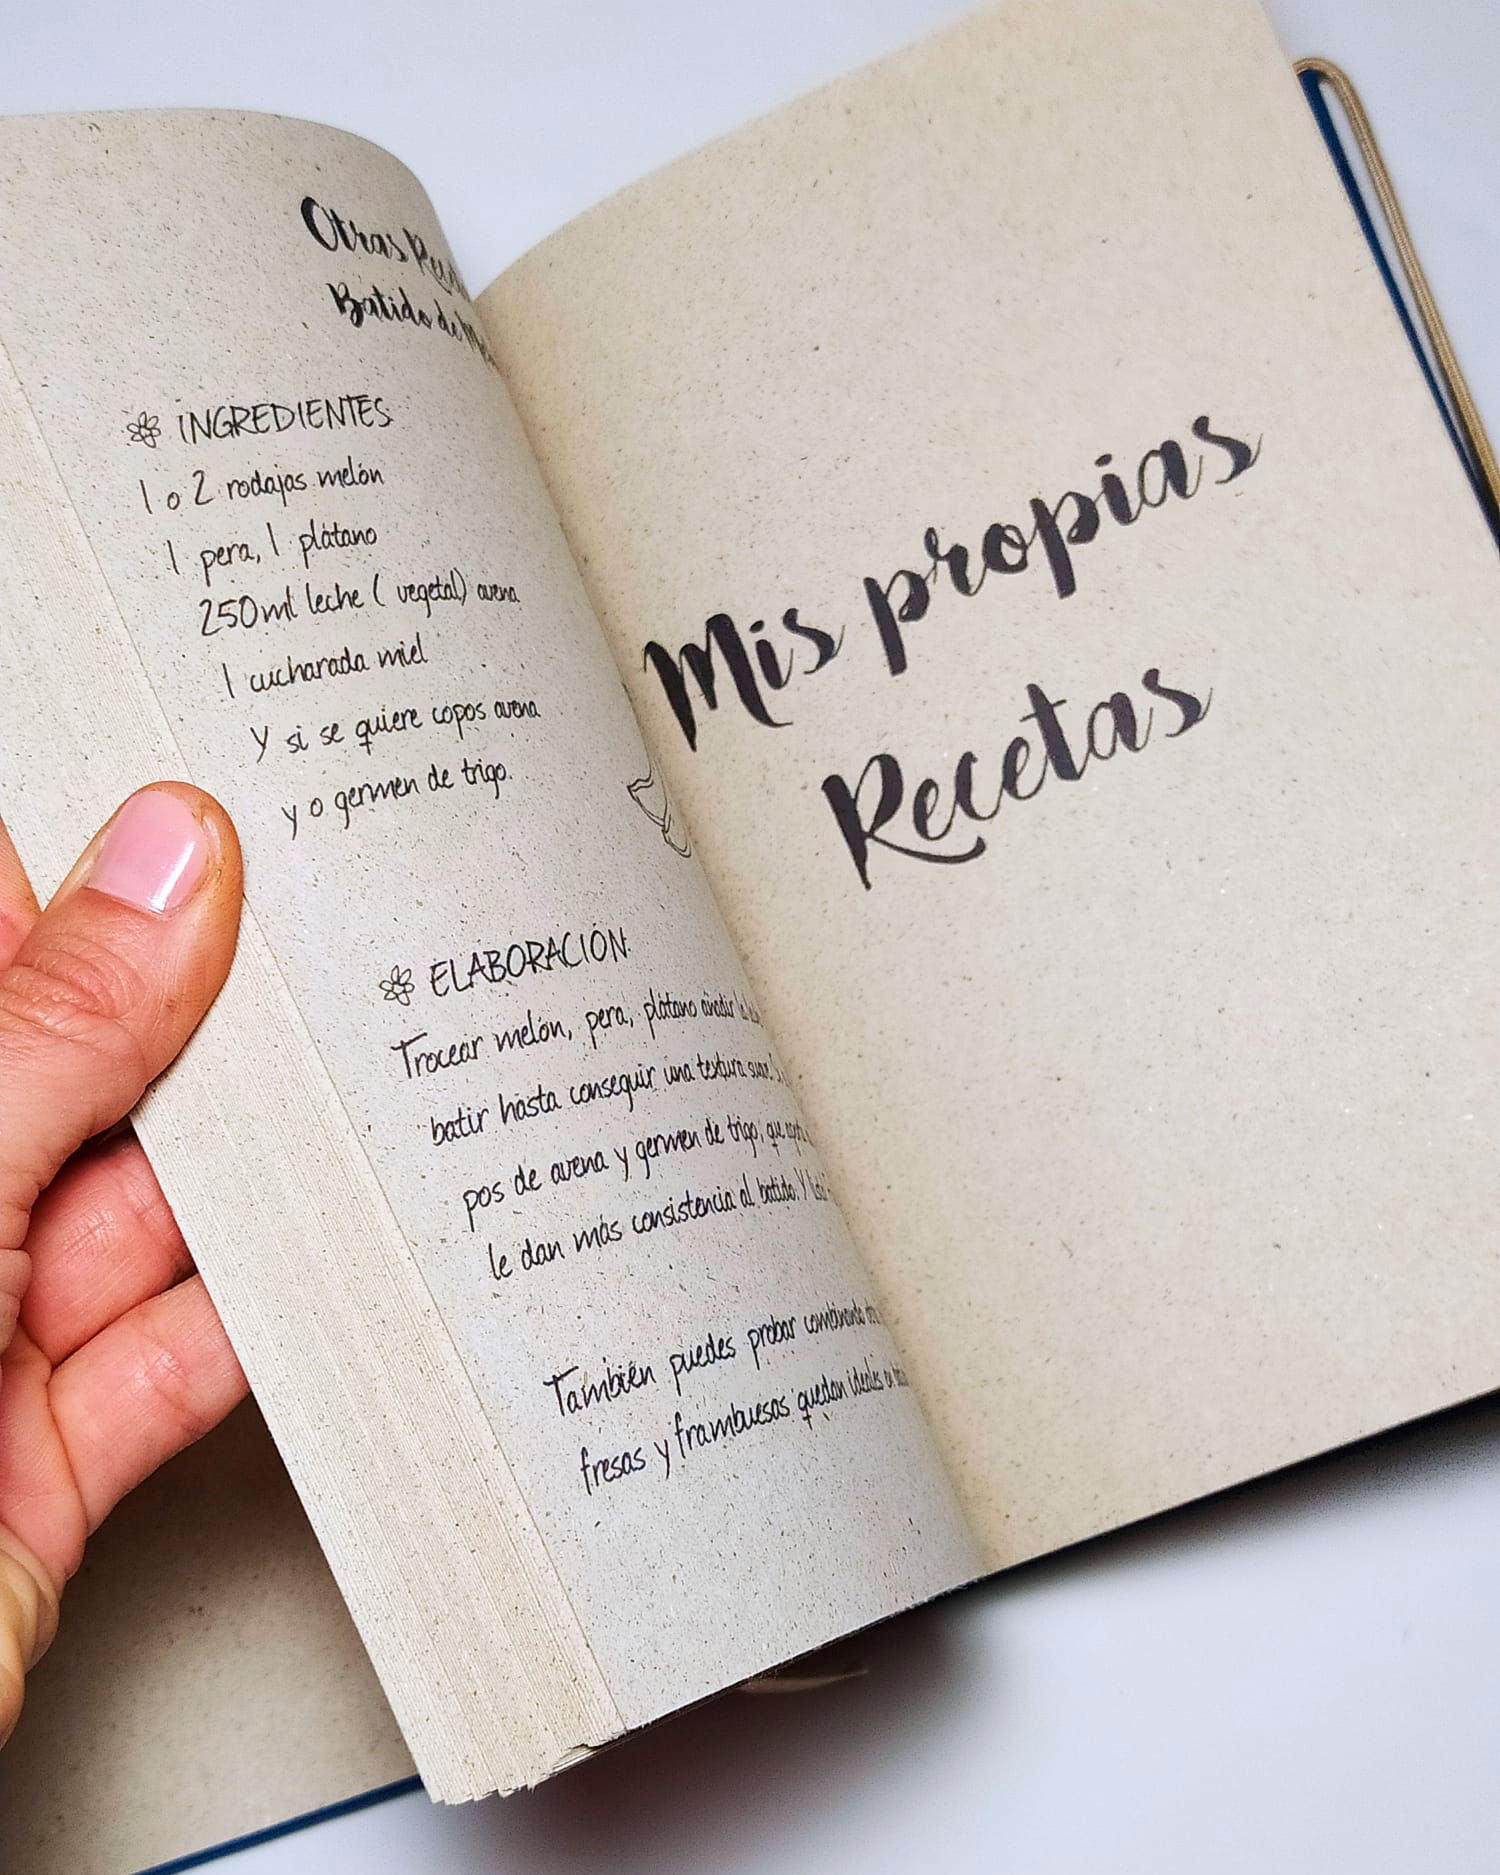 Otras
Batido de
INGREDIENTES
1 o 2 rodajas melón
1 pera, 1 plátano
250ml leche ( vegetal) avena
1 cucharada miel
Y si se quiere copos avena
y o germen de trigo.
ELABORACIÓN:
Trocear melón, pera, plátano añadir
batir hasta conseguir una textura
pos de avena y germen de trigo, que
le dan más consistencia al batido. Y
También puedes probar combinando
fresas y frambuesas quedan ideales en
Mis propias
Recetas